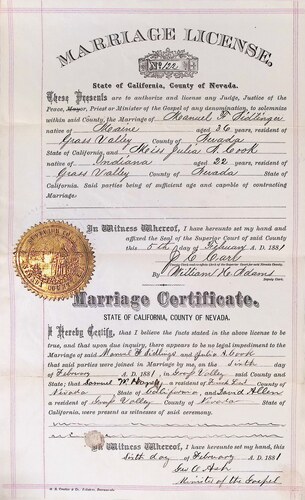 MARRIAGE LICENSE,
No 122
State of California, County of Nevada.
These Presents are to authorize and license any Judge, Justice of the
Peace, Mayor, Priest or Minister of the Gospel of any denomination, to solemnize
within said County, the Marriage of Manuel F.
native of Maine aged 36 years, resident of
Grass Valley County of Nevada
State of California, and Miss Julia A. Cook
native of Indiana aged 22 years, resident of
Grass Valley County of Nevada
State of California. Said parties being of sufficient age and capable of contracting
Marriage:
In Witness Whereof, I have hereunto set my hand and
affixed the Seal of the Superior Court of said County
this 5th day of February A. D. 1881
J. C. Carl
By William H. Adams
Deputy Clerk.
Marriage Certificate.
STATE OF CALIFORNIA, COUNTY OF NEVADA.
I Hereby Certify, that I believe the facts stated in the above license to be
true, and that upon due inquiry, there appears to be no legal impediment to the
Marriage of said Manuel F. and Julia A. Cook
that said parties were joined in Marriage by me, on the sixth day
of A. D. 1881 in Grass Valley County and
State; that Samuel W. a resident of
Nevada State of California, and David Allen
a resident of Grass Valley County of Nevada State of
California, were present as witnesses of said ceremony.
In Witness Whereof, I have hereunto set my hand, this
sixth day of February A. D. 1881
Geo. O. Ash
Minister of the Gospel.